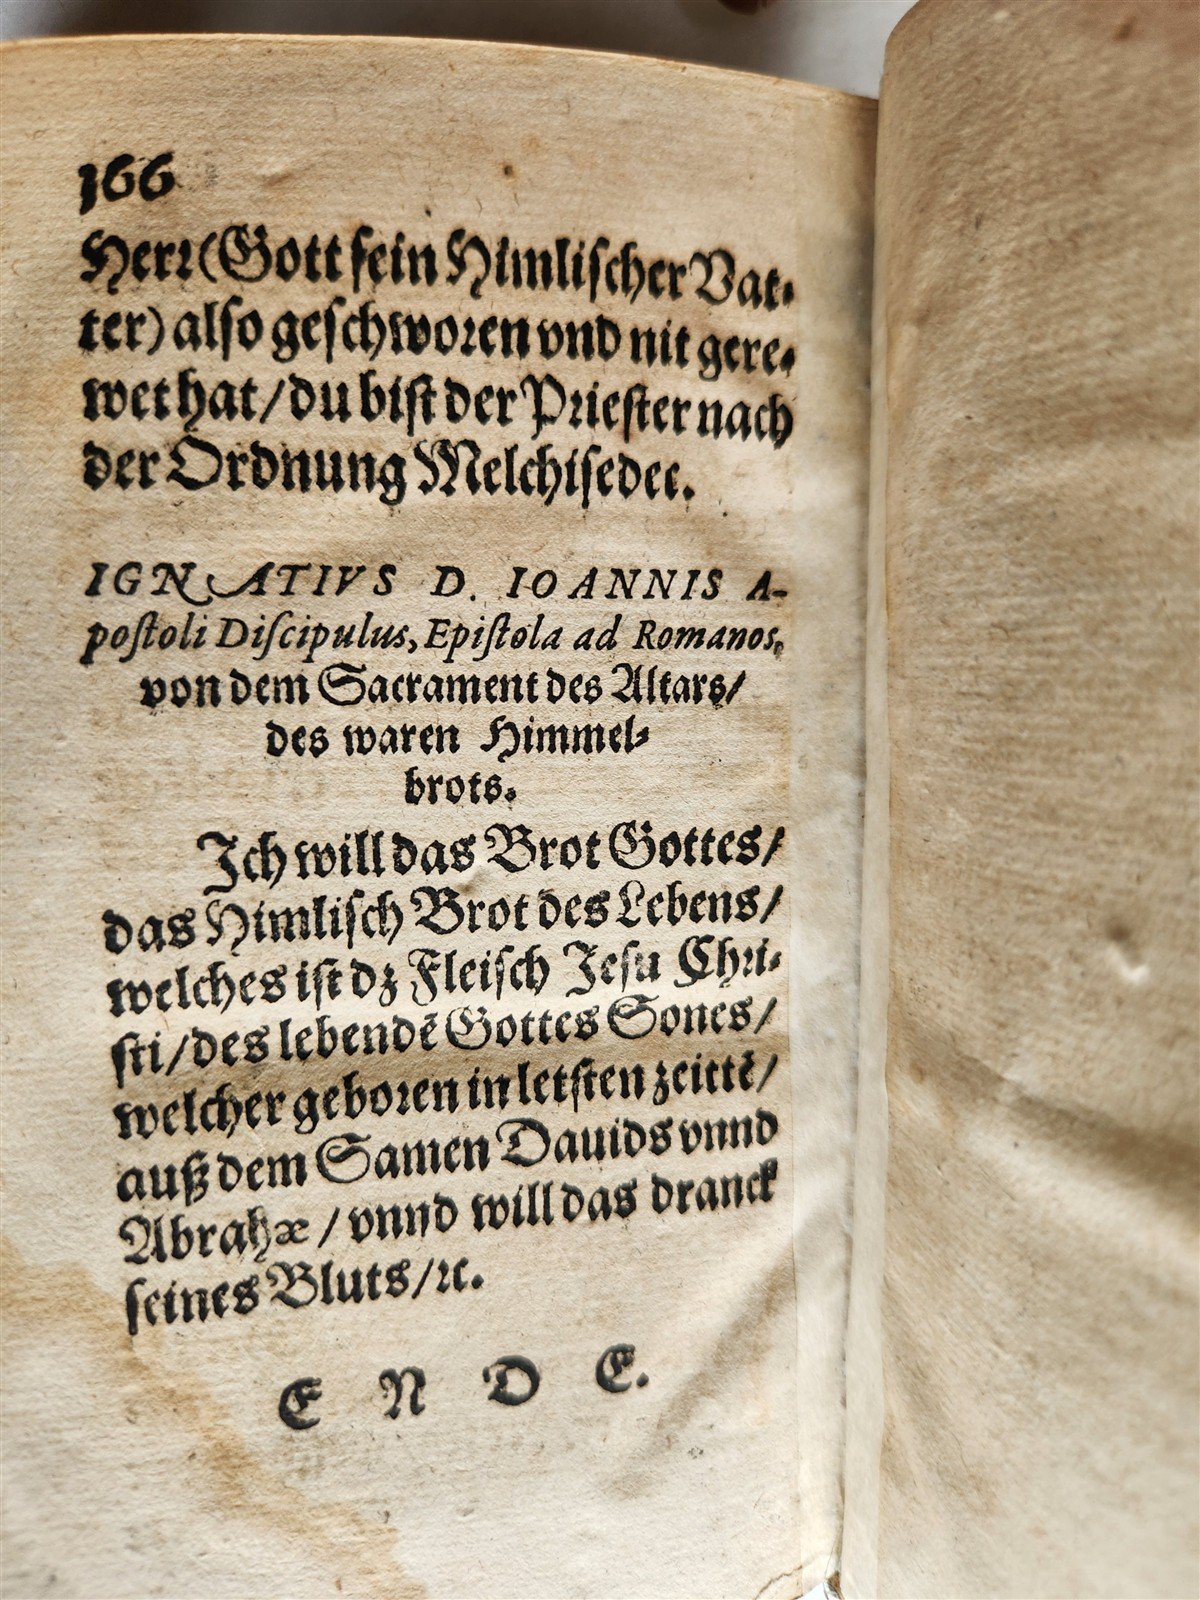 166
Herr (Gott sein Himlischer Vat-
ter) also geschworen vnd nit gere-
wet hat / du bist der Priester nach
der Ordnung Melchisedec.
IGNATIVS D. IOANNIS A-
postoli Discipulus, Epistola ad Romanos,
von dem Sacrament des Altars /
des waren Himmel-
brots.
Ich will das Brot Gottes /
das Himlisch Brot des Lebens /
welches ist dz Fleisch Jesu Chri-
sti / des lebendē Gottes Sones /
welcher geboren in letsten zeittē /
auß dem Samen Dauids vnnd
Abrahæ / vnnd will das dranck
seines Bluts / ꝛc.
E N D E.